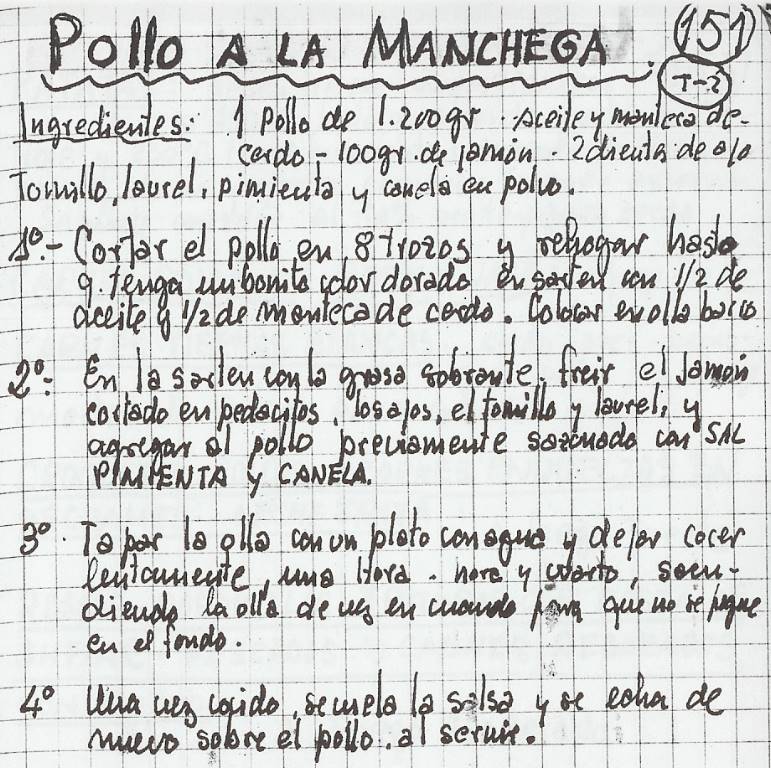 POLLO A LA MANCHEGA. 151
T-2
Ingredientes: 1 Pollo de 1.200gr. Aceite y manteca de-
cerdo - 100gr. de jamón. 2 dientes de ajo
Tomillo, laurel, pimienta y canela en polvo.
1º.- Cortar el pollo en 8 trozos y rehogar hasta
q. tenga un bonito color dorado en sarten con 1/2 de
aceite y 1/2 de manteca de cerdo. Colocar en olla barro
2º.- En la sarten con la grasa sobrante, freir el Jamón
cortado en pedacitos, los ajos, el tomillo y laurel, y
agregar al pollo previamente sazonado con SAL
PIMIENTA y CANELA.
3º. Tapar la olla con un plato con agua y dejar cocer
lentamente, una hora. hora y cuarto, sacu-
diendo la olla de vez en cuando para que no se pegue
en el fondo.
4º Una vez cocido, se cuela la salsa y se echa de
nuevo sobre el pollo, al servir.